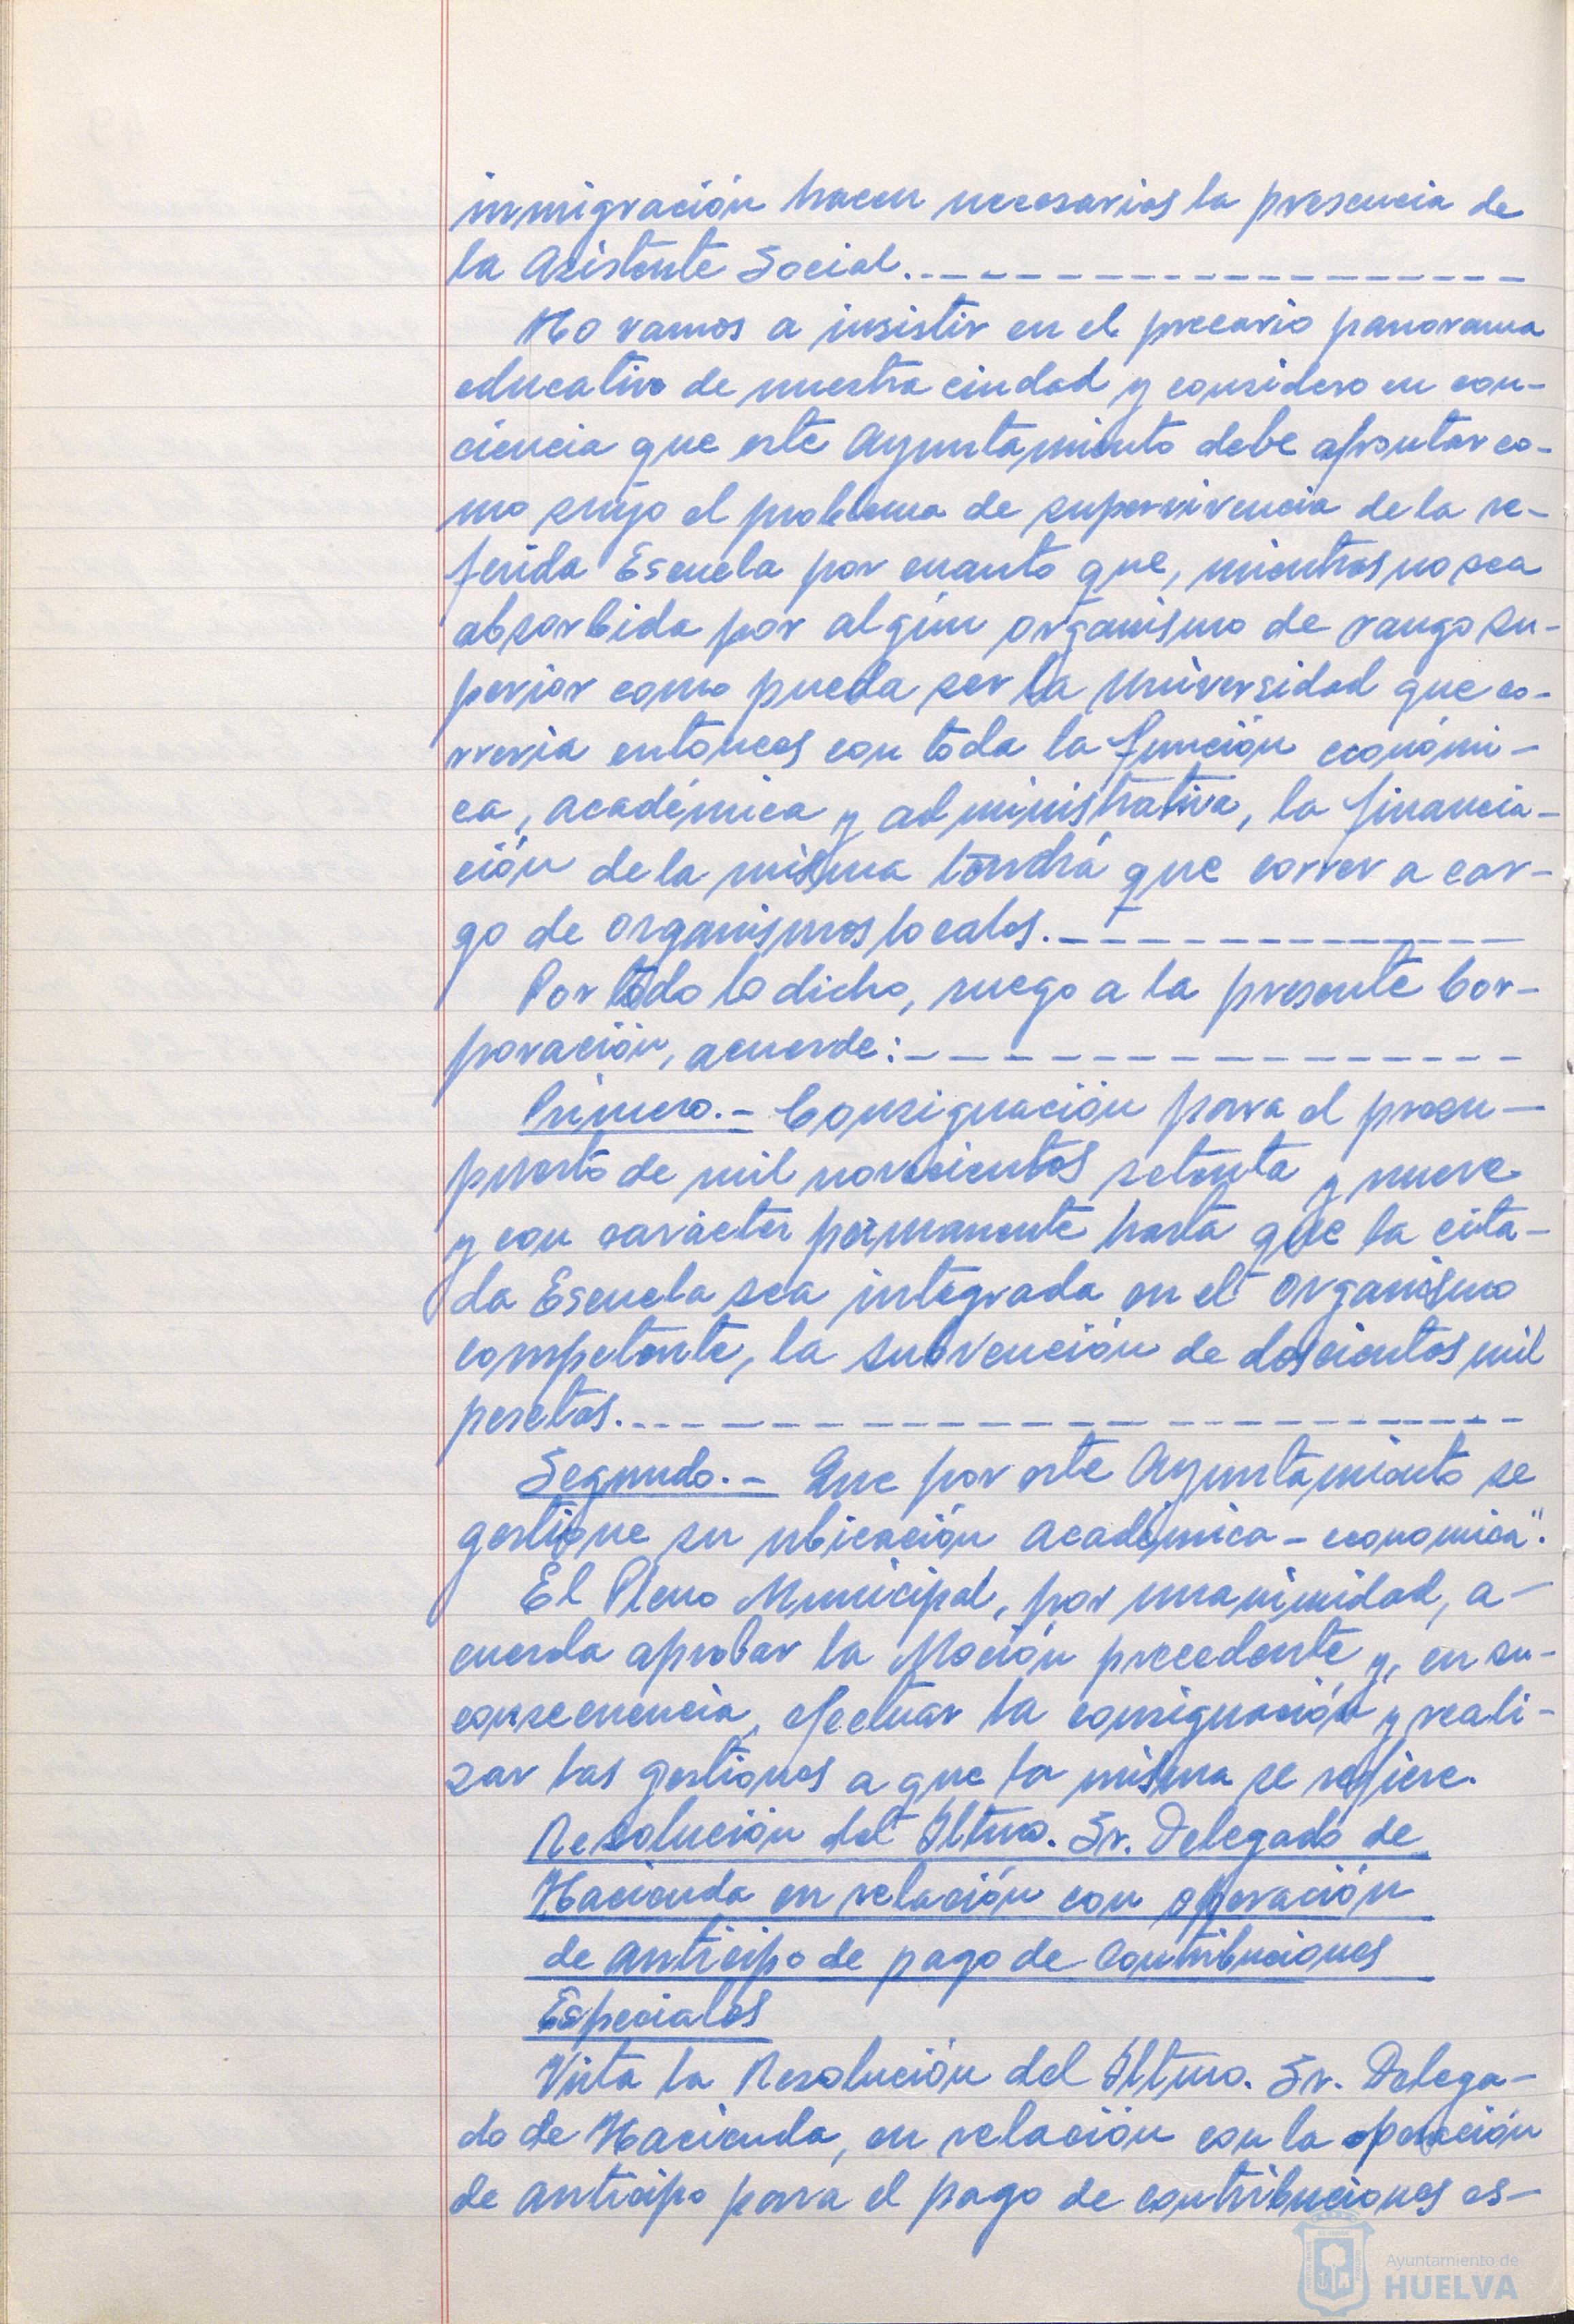 inmigración hacen necesarias la presencia de
la Asistente Social.
No vamos a insistir en el precario panorama
educativo de nuestra ciudad y considero en con-
ciencia que este Ayuntamiento debe afrontar co-
mo suyo el problema de supervivencia de la re-
ferida Escuela por cuanto que, mientras no sea
absorbida por algún organismo de rango su-
perior como pueda ser la Universidad que co-
rrería entonces con toda la función económi-
ca, académica y administrativa, la financia-
ción de la misma tendrá que correr a car-
go de organismos locales.
Por todo lo dicho, ruego a la presente Cor-
poración, acuerde:
Primero.- Consignación para el presu-
puesto de mil novecientos setenta y nueve
y con carácter permanente hasta que la cita-
da Escuela sea integrada en el organismo
competente, la subvención de doscientas mil
pesetas.
Segundo.- Que por este Ayuntamiento se
gestione su ubicación académica-economica".
El Pleno Municipal, por unanimidad, a-
cuerda aprobar la Moción precedente y, en su-
consecuencia, efectuar la consignación y reali-
zar las gestiones a que la misma se refiere.
Resolución del Iltmo. Sr. Delegado de
Hacienda en relación con operación
de anticipo de pago de Contribuciones
Especiales
Vista la Resolución del Iltmo. Sr. Delega-
do de Hacienda, en relación con la operación
de anticipo para el pago de contribuciones es-
Ayuntamiento de
HUELVA